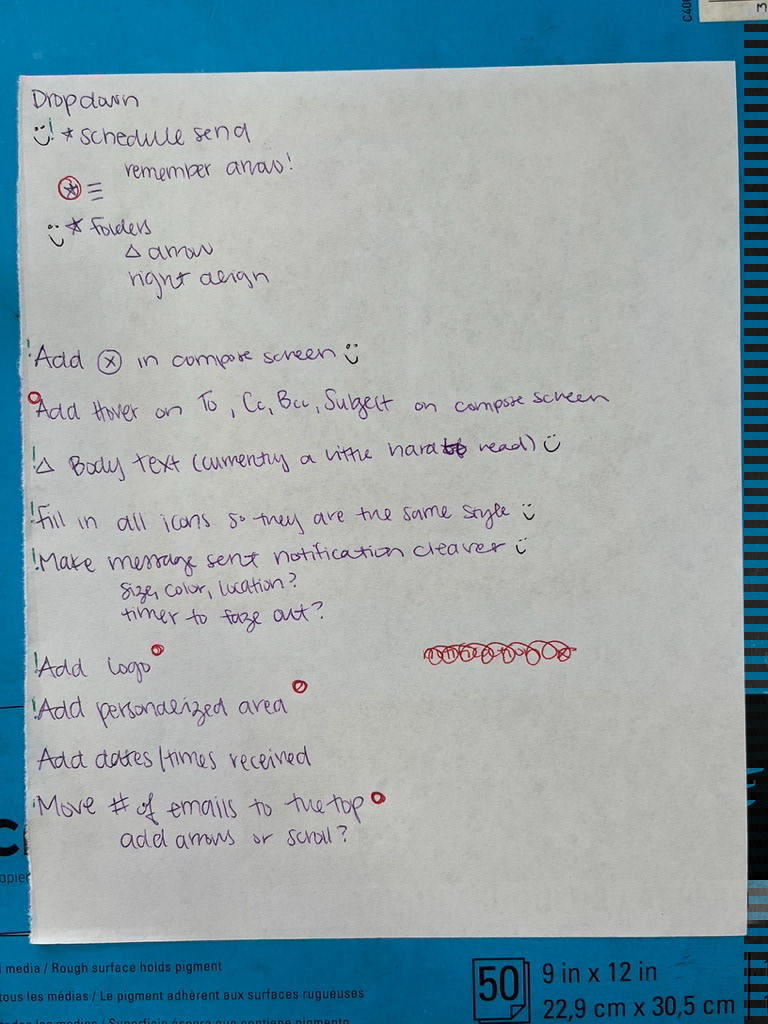 Dropdown
! * schedule send
remember arrow!
* ≡
* Folders
△ arrow
right align
! Add ⓧ in compose screen
Add Hover on To, Cc, Bcc, Subject on compose screen
! △ Body text (currently a little hard to read)
! Fill in all icons so they are the same style
! Make message sent notification cleaver
size, color, location?
timer to faze out?
! Add logo
! Add personalized area
Add dates/times received
! Move # of emails to the top
add arrows or scroll?
l media / Rough surface holds pigment
tous les médias / Le pigment adhèrent aux surfaces rugueuses
50
9 in x 12 in
22,9 cm x 30,5 cm